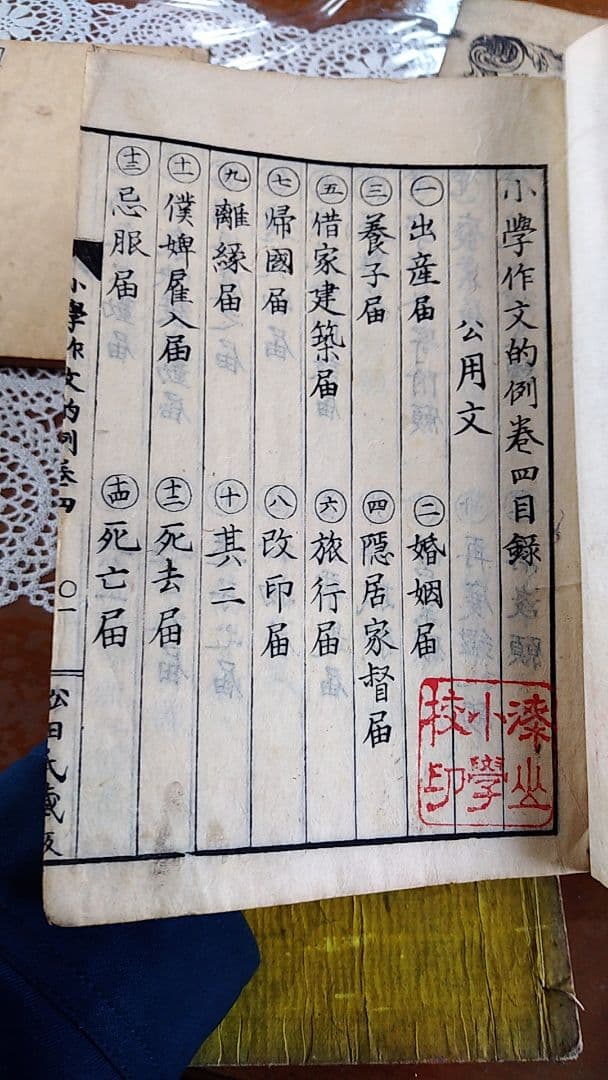 小學作文的例卷四目録
公用文
㊀出産届 ㊁婚姻届
㊂養子届 ㊃隠居家督届
㊄借家建築届 ㊅旅行届
㊆帰國届 ㊇改印届
㊈離縁届 ㊉其二
㈩㊀僕婢雇入届 十二死去届
十三忌服届 十四死亡届
小學作文的例卷四
〇一
松田氏蔵版
小學校印